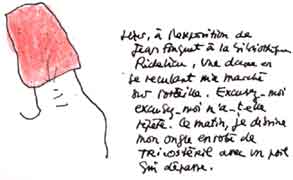 Hier, à l'exposition de
Jean Fouquet à la Bibliothèque
Richelieu, une dame en
se reculant m'a marché
sur l'orteil. Excusez-moi
excusez-moi m'a-t-elle
répété. Ce matin, je dessine
mon ongle enrobé de
TRICOSTÉRIL avec un poil
qui dépasse.